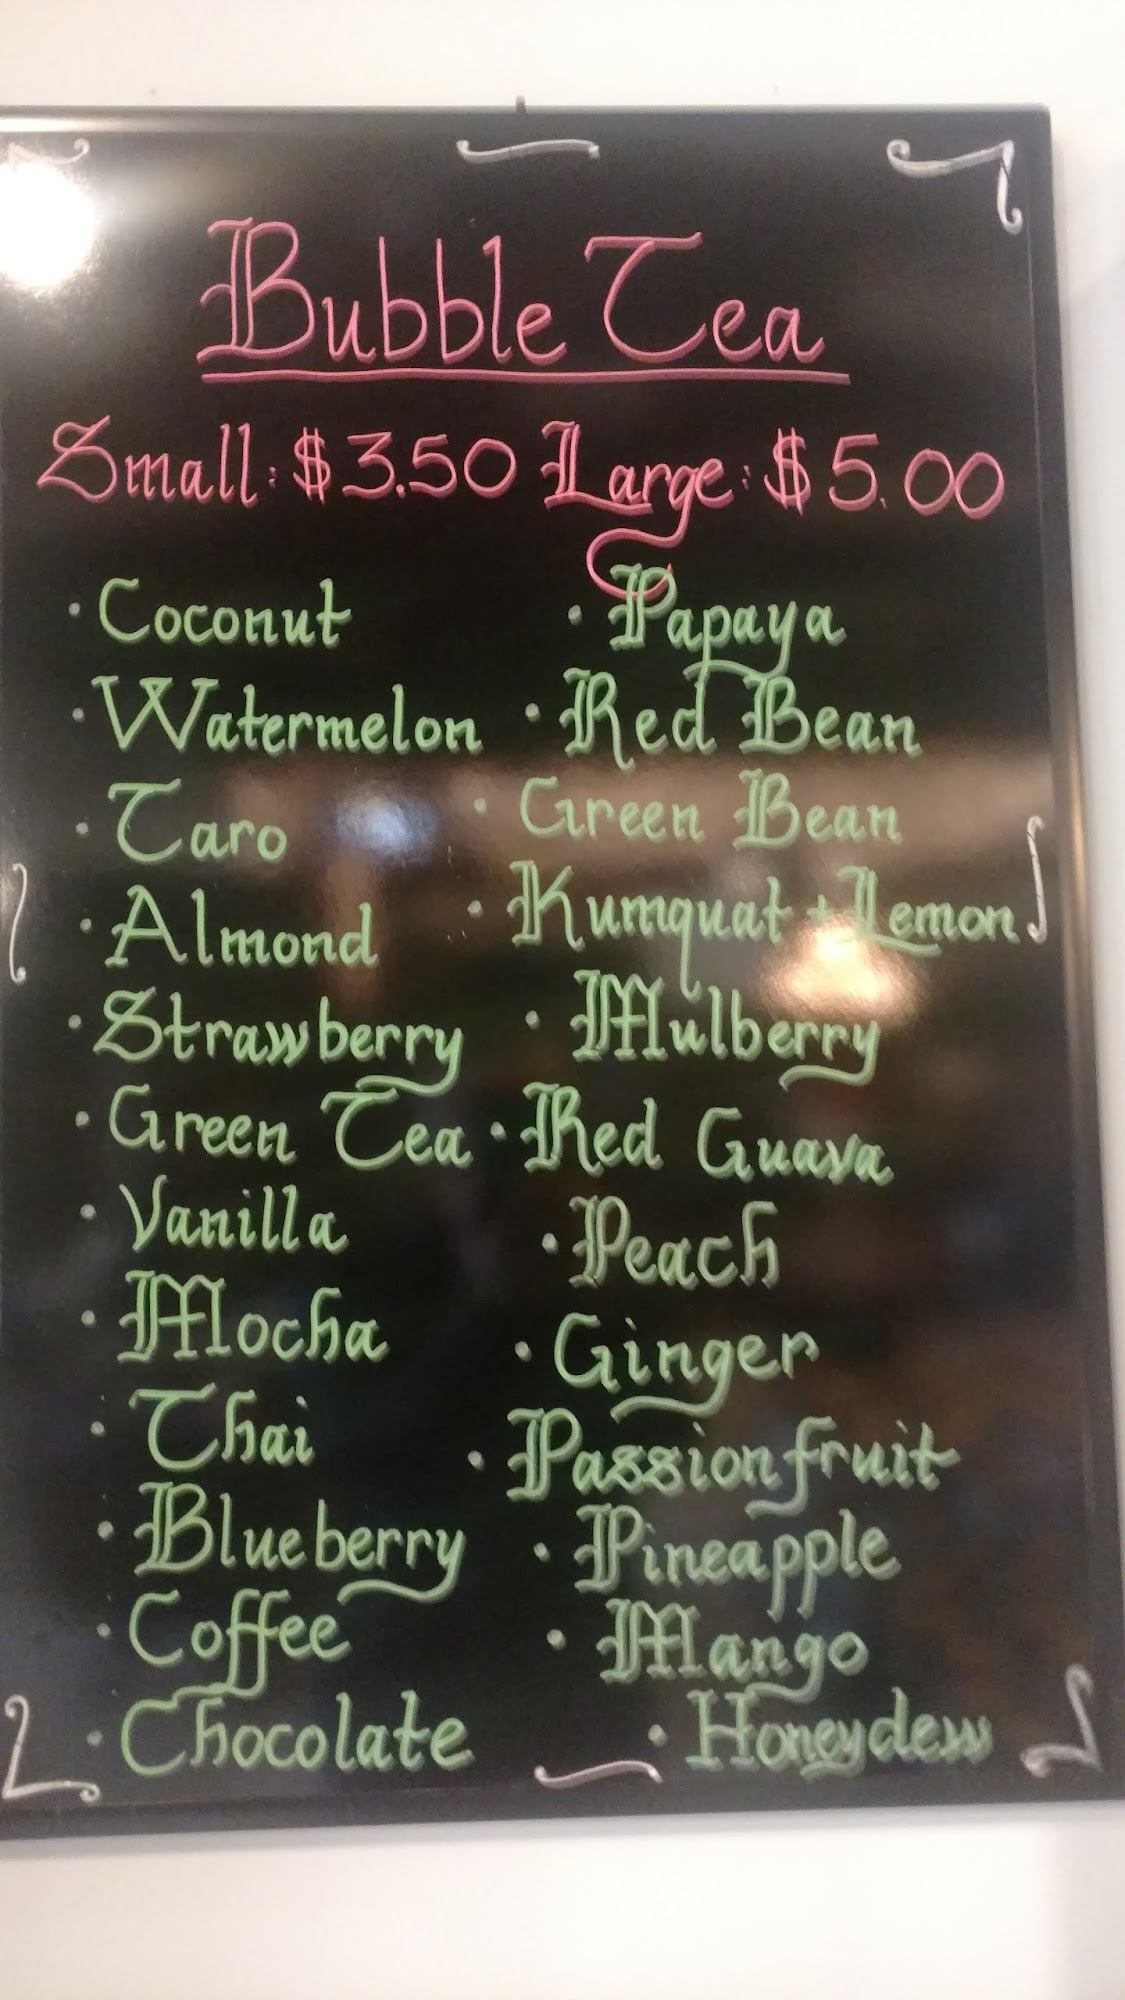 Bubble Tea
Small: $3.50 Large: $5.00
• Coconut
• Watermelon
• Taro
• Almond
• Strawberry
• Green Tea
• Vanilla
• Mocha
• Thai
• Blueberry
• Coffee
• Chocolate
• Papaya
• Red Bean
• Green Bean
• Kumquat + Lemon
• Mulberry
• Red Guava
• Peach
• Ginger
• Passionfruit
• Pineapple
• Mango
• Honeydew